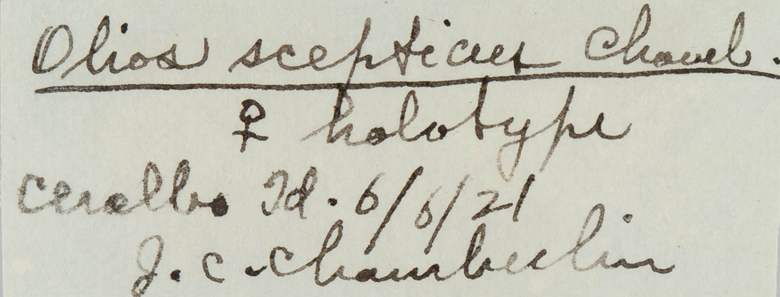 Olios scepticus Chamb.
♀ holotype
Cerallbo Id. 6/6/21
J. C. Chamberlin